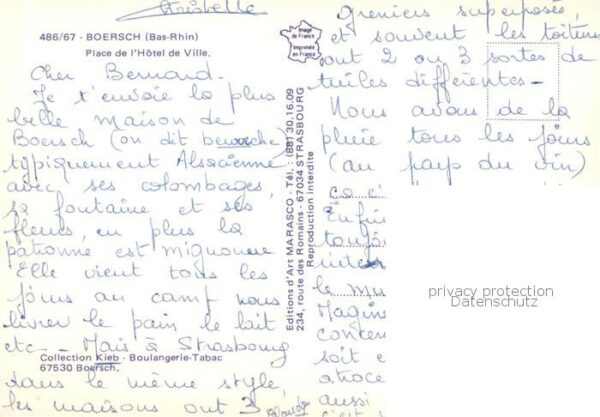 Christelle
486/67 - BOERSCH (Bas-Rhin)
Place de l'Hôtel de Ville.
Cher Bernard.
Je t'envoie la plus
belle maison de
Boersch (on dit
typiquement Alsacienne
avec ses colombages,
sa fontaine et ses
fleurs, en plus la
patronne est mignonne
Elle vient tous les
jours au camp nous
livrer le pain le lait
etc - Mais à Strasbourg
Collection Kieb - Boulangerie-Tabac
67530 Boersch.
dans le même style,
les maisons ont 3
Image
de France
Imprimée
en France
Editions d'Art MARASCO - Tél. : (88) 30.16.09
234, route des Romains - 67034 STRASBOURG
Reproduction interdite
greniers superposés,
et souvent les toitures
ont 2 ou 3 sortes de
tuiles différentes -
Nous avons de la
pluie tous les jours
(au pays du vin)
ça
Enfin
toujo
le mu
Magin
conten
soit e
atroce
aussi
privacy protection
Datenschutz